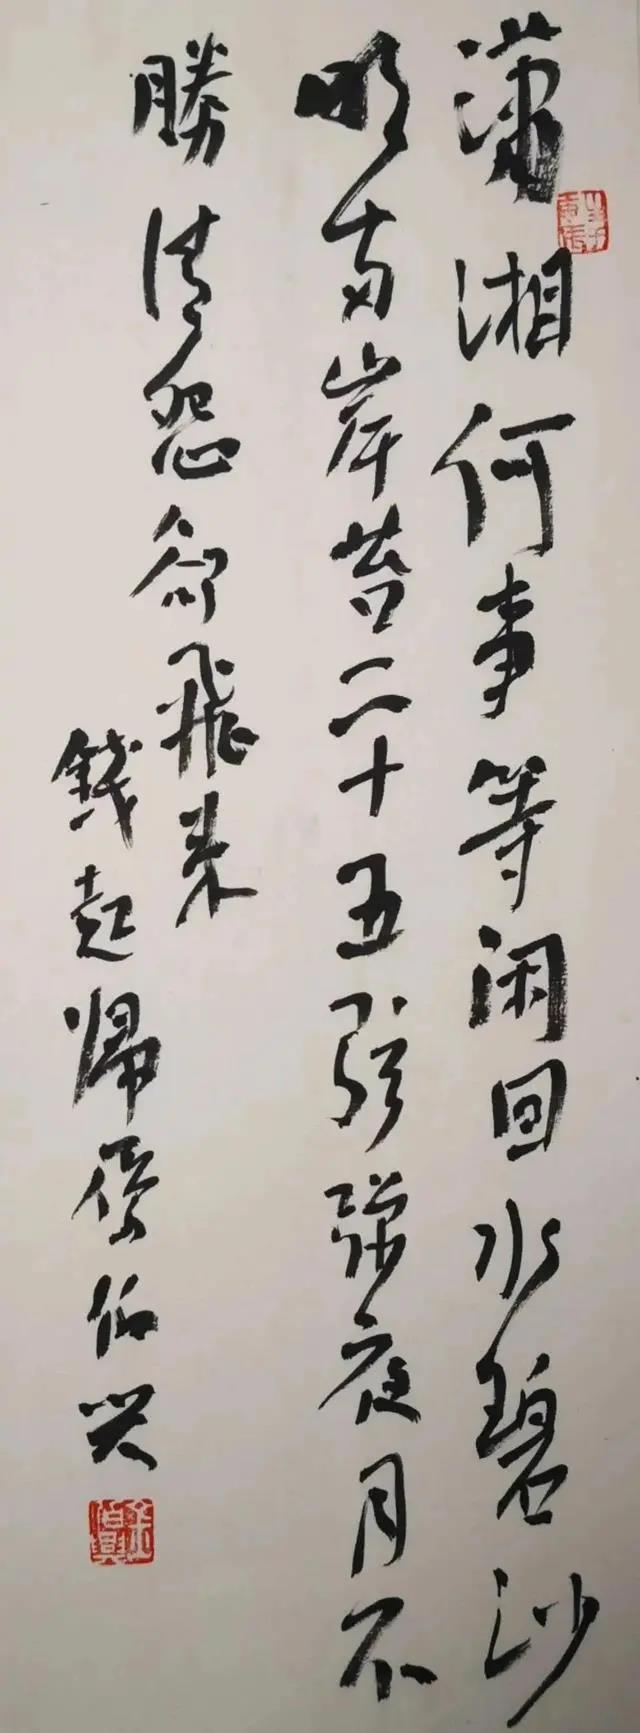 瀟湘何事等闲回水碧沙
明两岸苔二十五弦弹夜月不
勝清怨却飛来
錢起歸雁伯兴